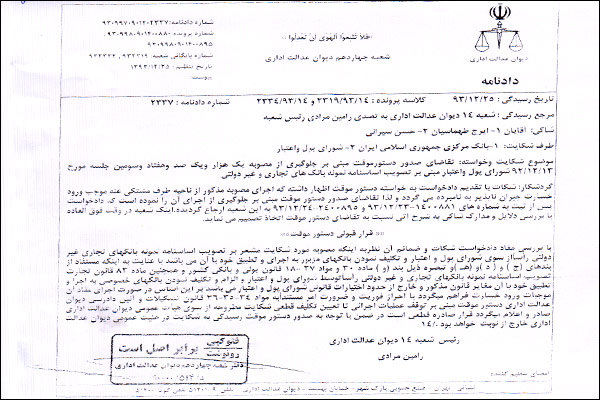 شماره دادنامه: ۹۳۰۹۹۷۰۹۰۱۴۰۲۳۳۷
شماره پرونده: ۹۳۰۹۹۸۰۹۰۱۴۰۰۸۸۰
۹۳۰۹۹۸۰۹۰۱۴۰۰۸۹۵
شماره بایگانی شعبه:
تاریخ تنظیم: ۱۳۹۳/۱۲/۲۵
پیوست:
«فلا تتبعوا الهوی ان تعدلوا»
شعبه چهاردهم دیوان عدالت اداری
دیوان عدالت اداری
دادنامه
تاریخ رسیدگی: ۹۳/۱۲/۲۵ کلاسه پرونده: ۲۳۱۹/۹۳/۱۴ و ۲۳۳۴/۹۳/۱۴ شماره دادنامه: ۲۳۳۷
مرجع رسیدگی: شعبه ۱۴ دیوان عدالت اداری به تصدی رامین مرادی رئیس شعبه
شاکی: آقایان ۱- ایرج طهماسبیان ۲- حسن
طرف شکایت: ۱- بانک مرکزی جمهوری اسلامی ایران ۲- شورای پول واعتبار
موضوع شکایت وخواسته: تقاضای صدور دستورموقت مبنی بر جلوگیری از مصوبه یک هزار ویک صد وهفتاد وسومین جلسه مورخ
۹۲/۱۲/۱۳ شورای پول و اعتبار مبنی بر تصویب اساسنامه نمونه بانک های تجاری و غیر دولتی
گردشکار: شکات با تقدیم دادخواست به خواسته دستور موقت اظهار داشته که اجرای مصوبه مذکور از ناحیه طرف مشتکی عنه موجب ورود
خسارت جبران ناپذیر به نامبرده می گردد و لذا تقاضای صدور دستور موقت مبنی بر جلوگیری از اجرای آن را نموده است که دادخواست
پس از ثبت به شماره های به این شعبه ارجاع گردیده، اینک شعبه در وقت فوق العاده
با بررسی دلایل و مدارک شاکی به شرح آتی نسبت به تقاضای دستور موقت اتخاذ تصمیم می نماید.
«قرار قبولی دستور موقت»
با بررسی مفاد دادخواست شکات و ضمائم آن نظربه اینکه مصوبه مورد شکایت مشعر بر تصویب اساسنامه نمونه بانکهای تجاری غیر
دولتی رأساً از سوی شورای پول و اعتبار و تکلیف نمودن بانکهای مزبور به اجرای و تطبیق خود با آن می باشد با عنایت به اینکه مستفاد از
بندهای (ج) و (د) و (هـ) و تبصره ذیل بند (و) ماده ۳۰ و مواد ۳۷ و ۱۸ قانون پولی و بانکی کشور و همچنین ماده ۸۳ قانون تجارت
تصویب اساسنامه نمونه بانکهای تجاری و غیر دولتی رأساً توسط شورای پول و اعتبار و الزام و تکلیف نمودن بانکهای خصوصی به اجرا و
تطبیق خود با آن مغایر قانون مذکور و خارج از حدود اختیارات قانونی شورای پول و اعتبار می باشد بر این اساس در صورت اجراء مفاد آن
موجبات ورود خسارت فراهم میگردد با احراز فوریت و ضرورت امر مستنداً به مواد ۳۴-۳۵-۳۶ قانون تشکیلات و آئین دادرسی دیوان
عدالت اداری دستور موقت مبنی بر توقف عملیات اجرائی تا تعیین تکلیف قطعی شکایت مطروحه از سوی هیأت عمومی دیوان عدالت
صادر و اعلام میگردد قرار صادره قطعی است در ضمن با توجه به صدور دستور موقت رسیدگی به شکایت در هیئت عمومی دیوان عدالت
اداری خارج از نوبت خواهد بود /۱۴
رئیس شعبه ۱۴ دیوان عدالت اداری
رامین مرادی
فتوکپی برابر اصل است
رونوشت
دفتر شعبه چهاردهم دیوان عدالت اداری
امضای تنظیم کننده:
نشانی: تهران - ضلع جنوبی پارک شهر - خیابان بهشت - دیوان عدالت اداری